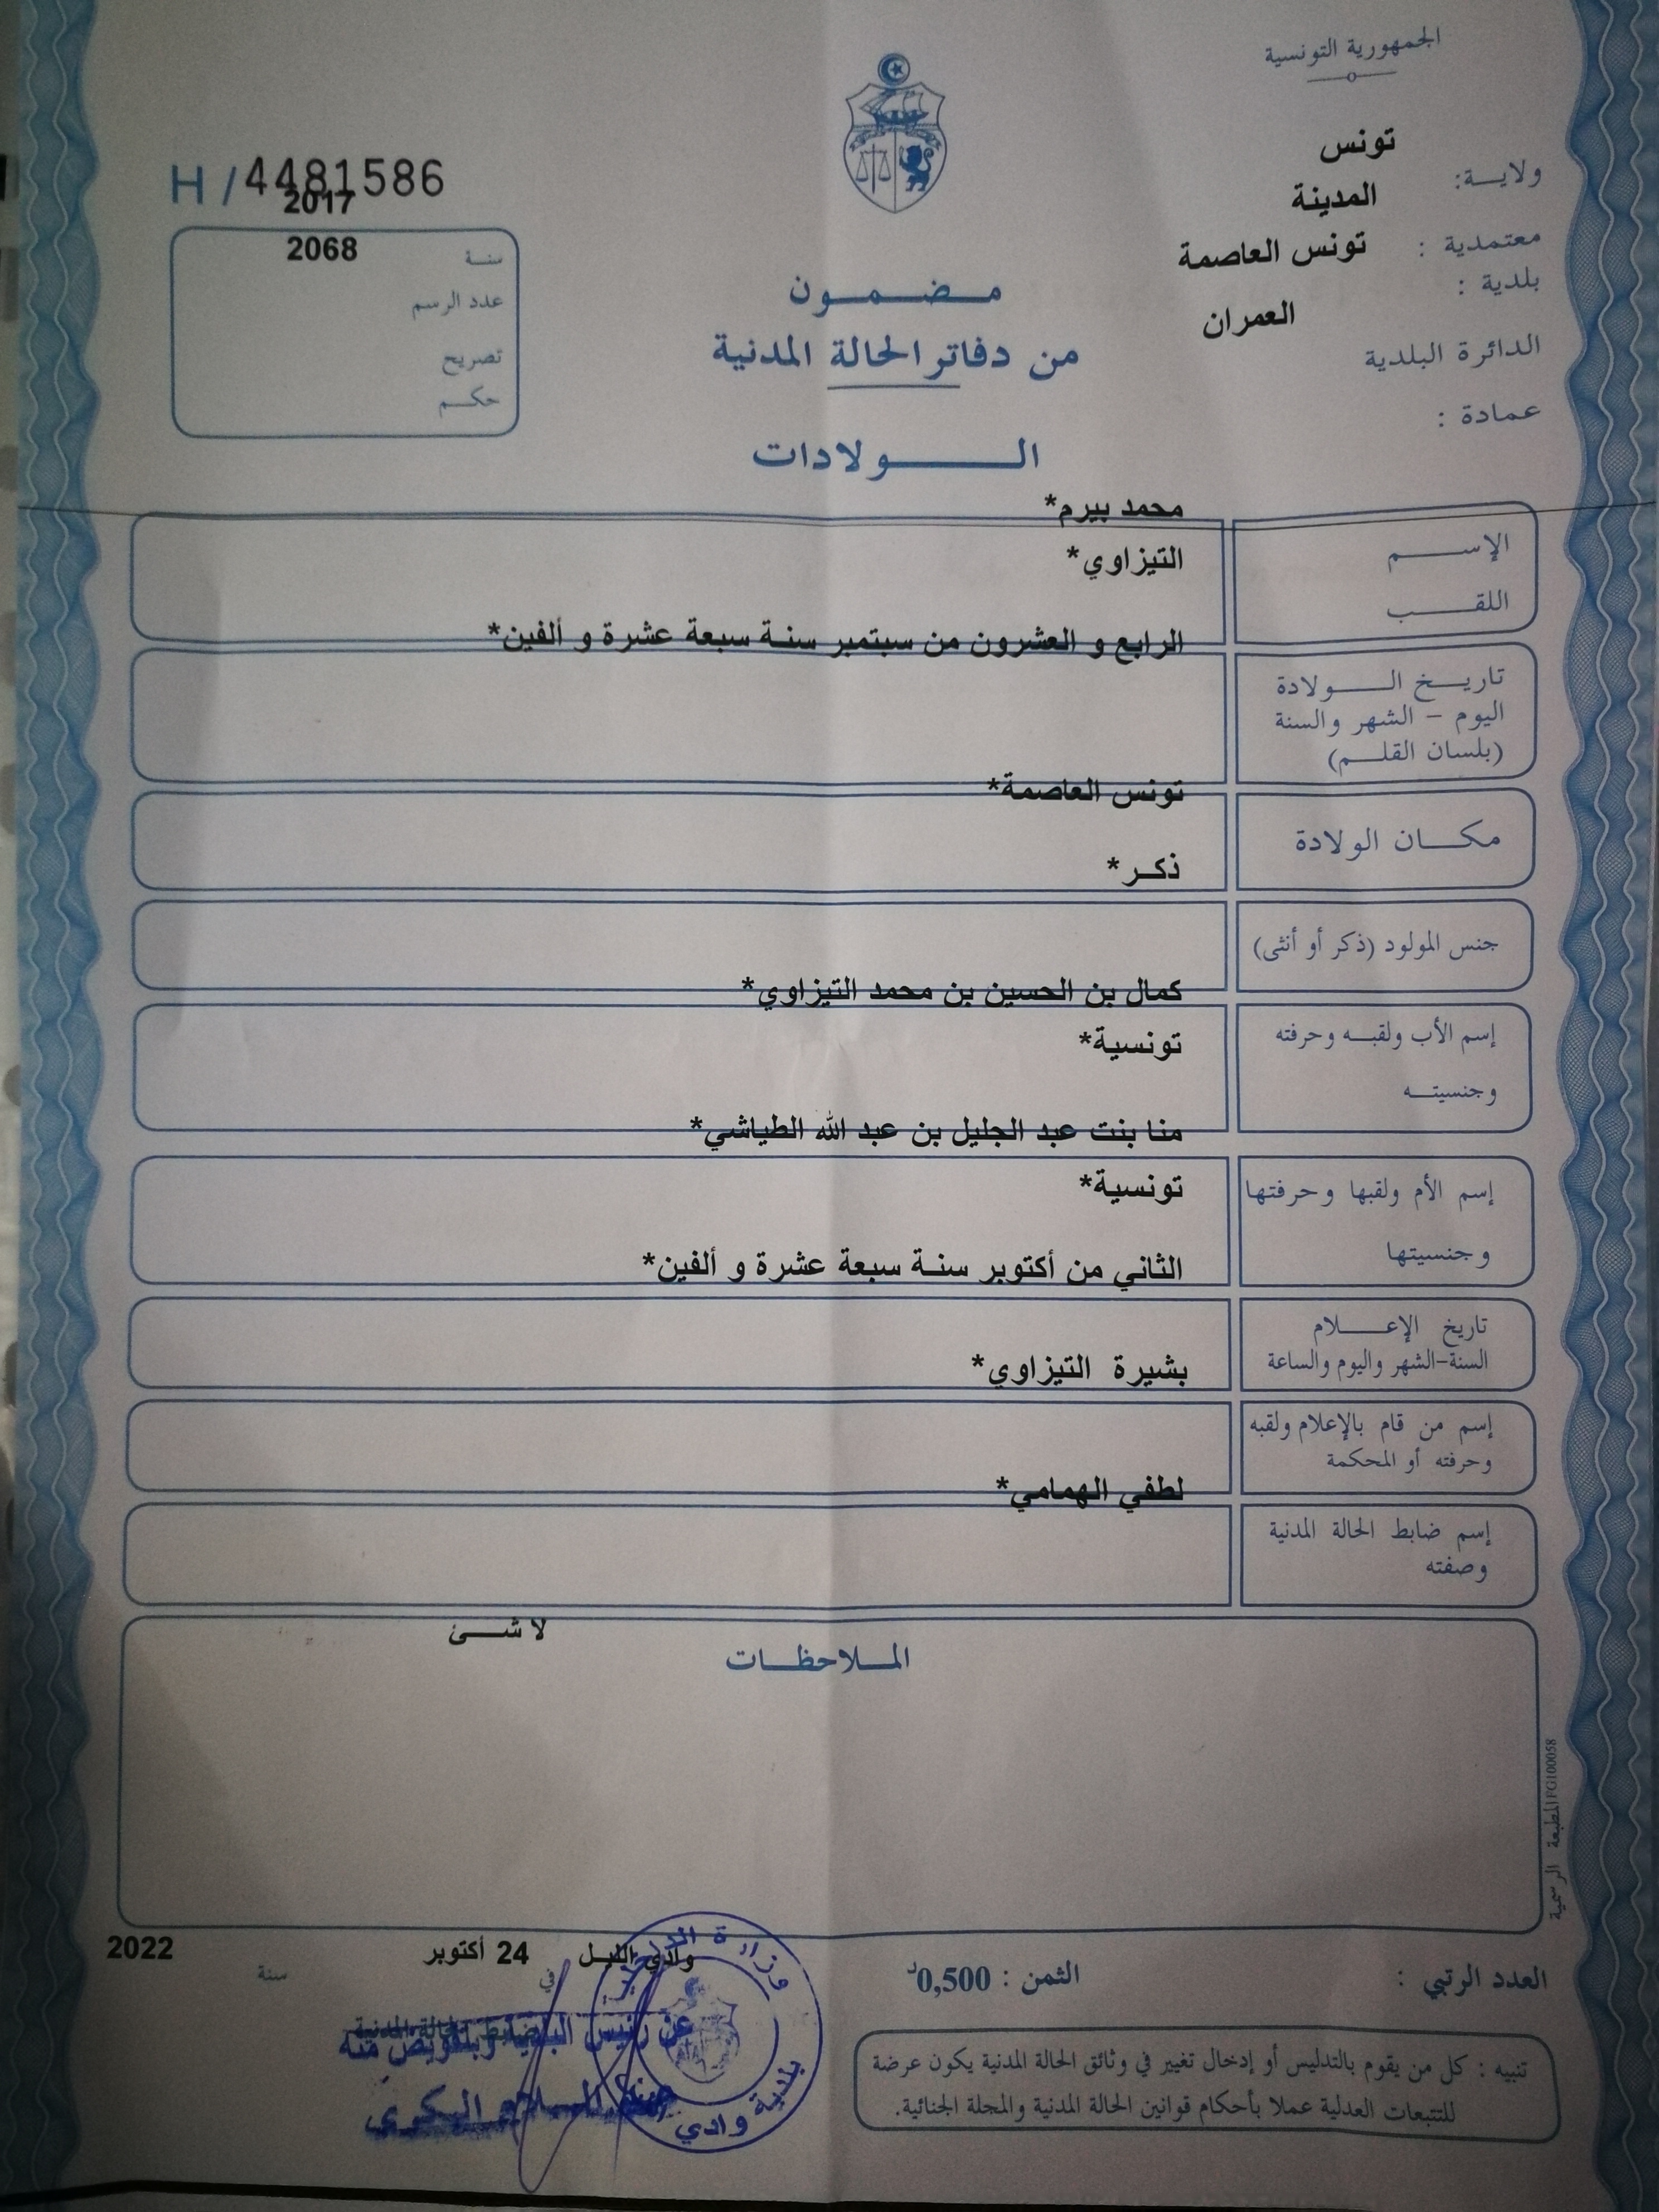 الجمهورية التونسية
ولايـــة: تونس
معتمدية : المدينة
بلدية : تونس العاصمة
الدائرة البلدية العمران
عمادة :
H / 4481586
سنـة 2017
عدد الرسم 2068
تصريح
حكـــم
مـــضـــمـــون
من دفاتر الحالة المدنية
الـــــــولادات
الإســــــم محمد بيرم*
اللقــــــب التيزاوي*
تاريـــخ الـــــولادة
اليوم – الشهر والسنة
(بلسان القلـــم)
الرابع و العشرون من سبتمبر سنة سبعة عشرة و ألفين*
مكـــان الولادة تونس العاصمة*
جنس المولود (ذكر أو أنثى) ذكـر*
إسم الأب ولقبـــه وحرفته كمال بن الحسين بن محمد التيزاوي*
وجنسيتـــه تونسية*
إسم الأم ولقبها وحرفتها منا بنت عبد الجليل بن عبد الله الطياشي*
وجنسيتها تونسية*
تاريخ الإعـــــلام
السنة-الشهر واليوم والساعة
الثاني من أكتوبر سنة سبعة عشرة و ألفين*
إسم من قام بالإعلام ولقبه
وحرفته أو المحكمة
بشيرة التيزاوي*
إسم ضابط الحالة المدنية
وصفته
لطفي الهمامي*
المـــلاحظـــات
لا شـــئ
المطبعة الرسمية FG100058
وادي الليـل في 24 أكتوبر سنة 2022
العدد الرتبي :
الثمن : 0,500د
عن رئيس البلدية وبتفويض منه
عبد السلام البكوي
وزارة الداخلية
بلدية وادي
تنبيه : كل من يقوم بالتدليس أو إدخال تغيير في وثائق الحالة المدنية يكون عرضة
للتتبعات العدلية عملا بأحكام قوانين الحالة المدنية والمجلة الجنائية.